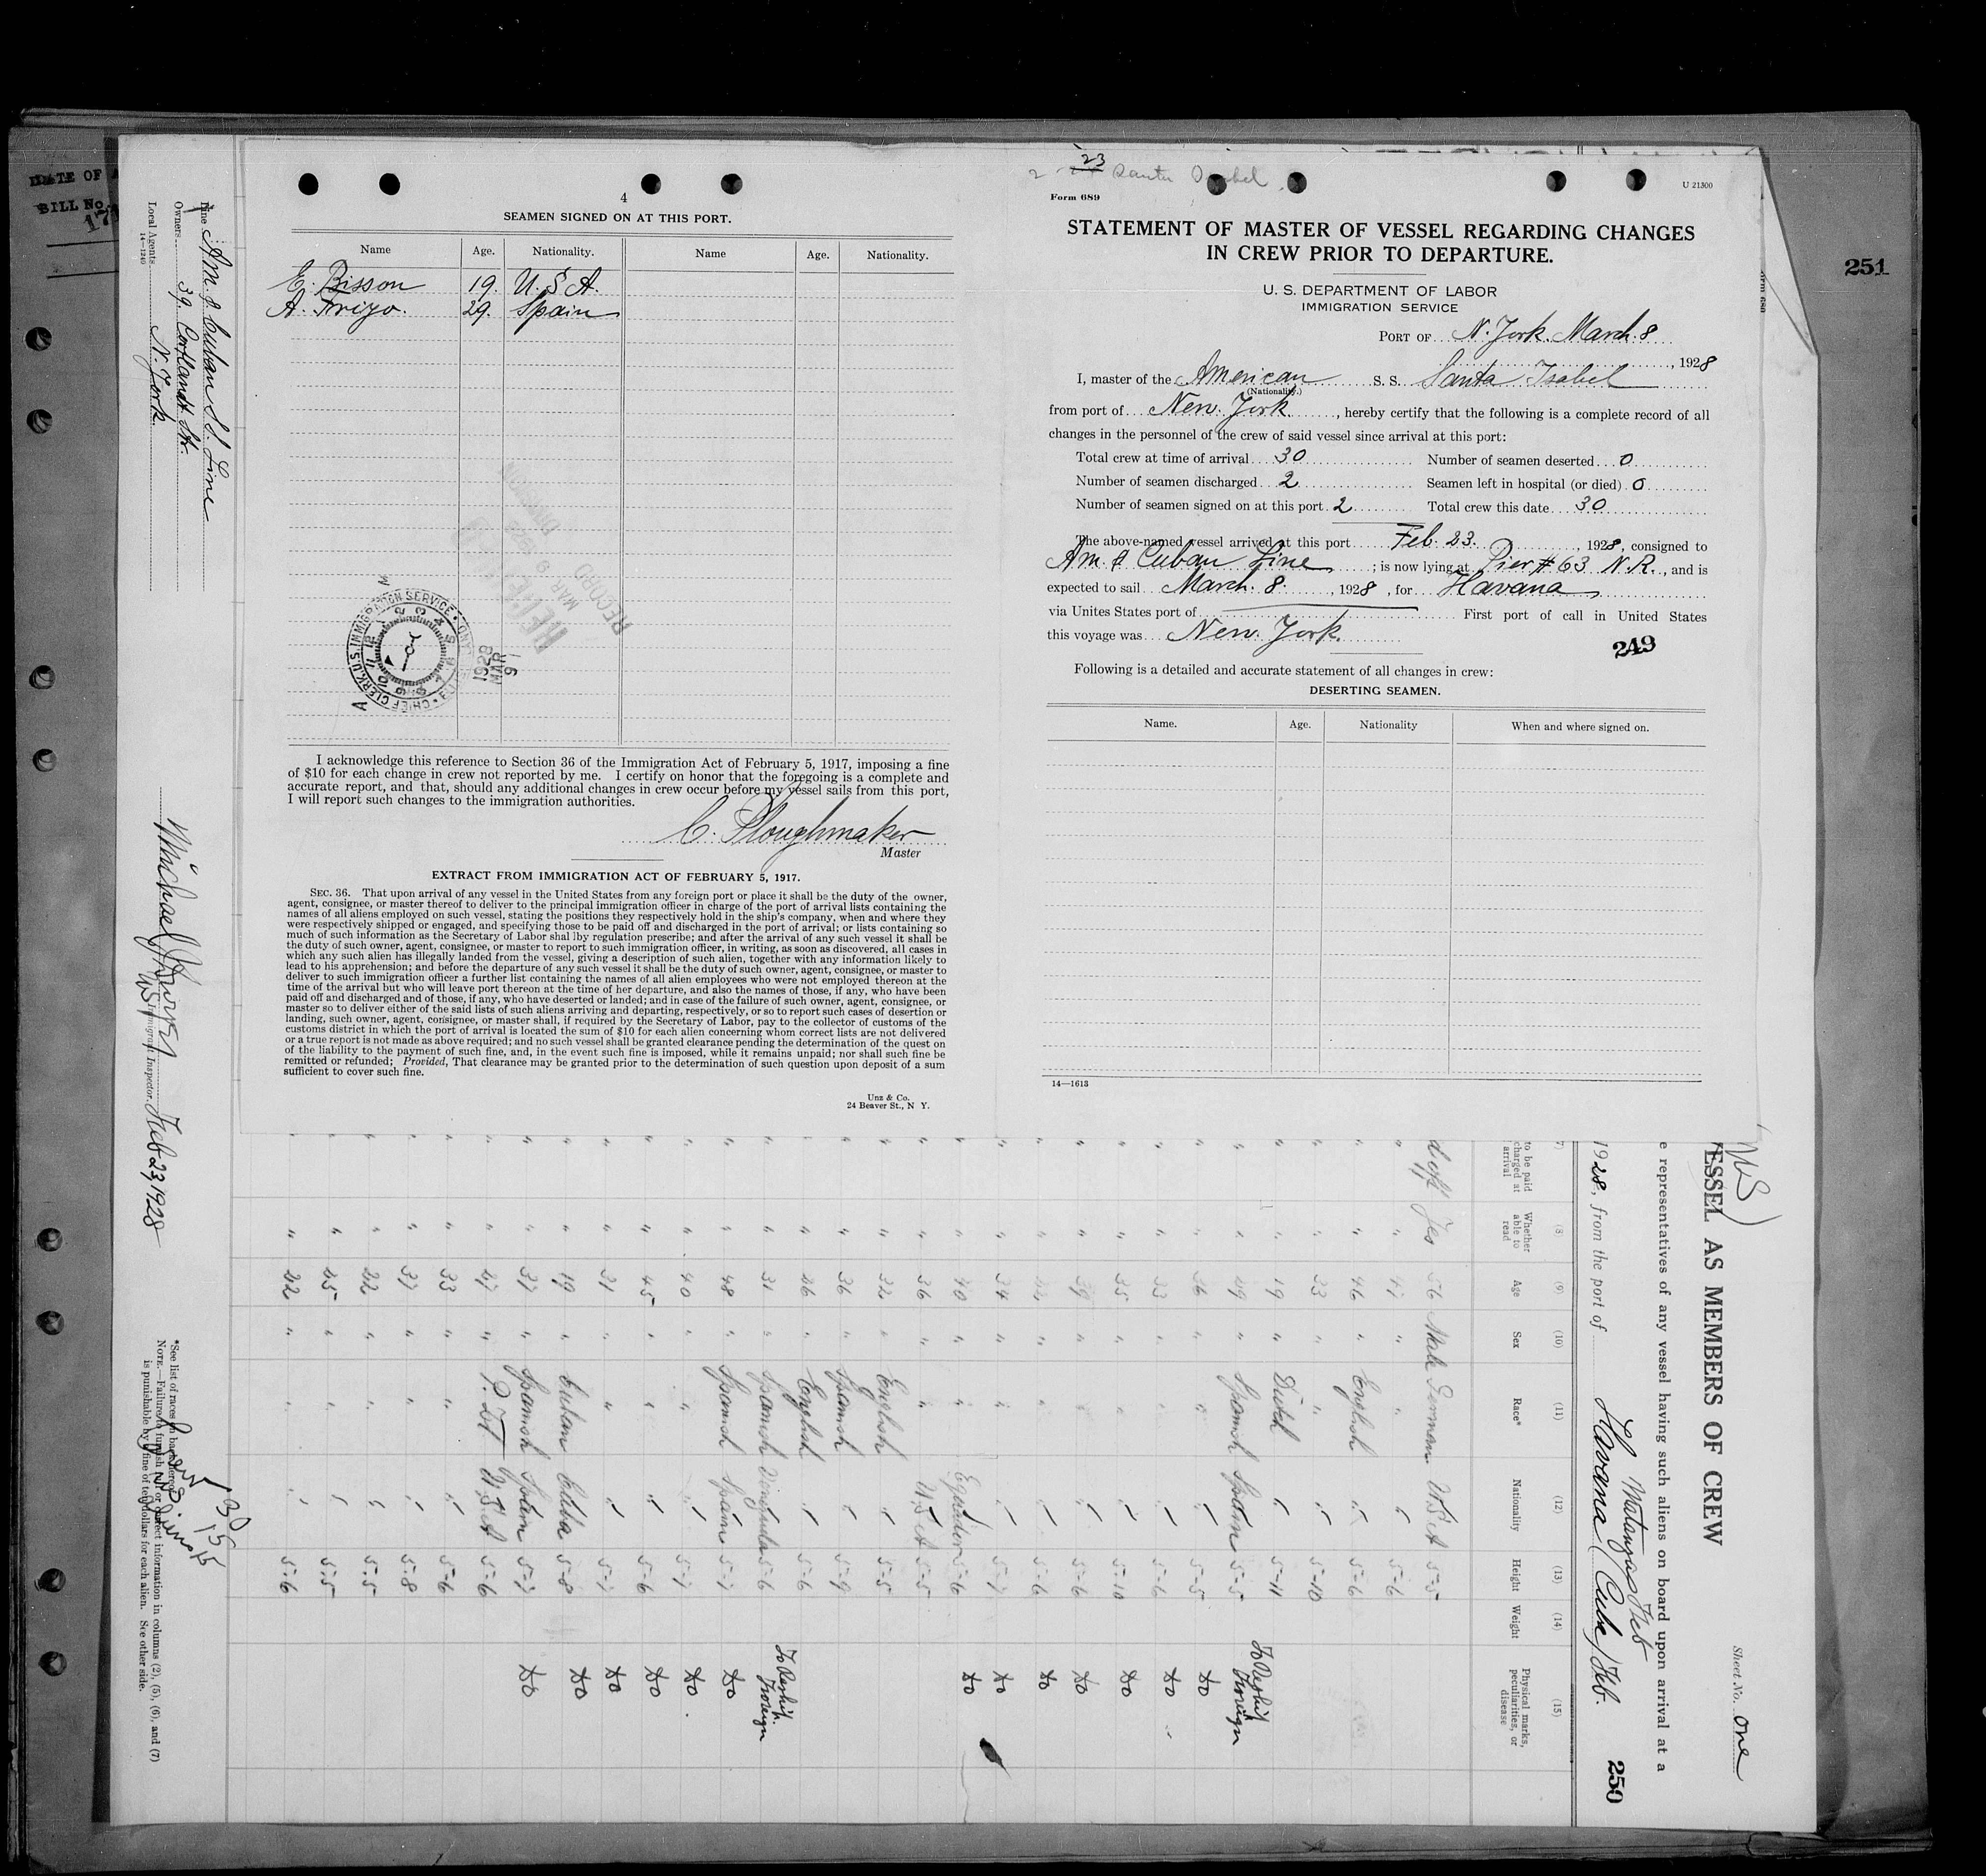 23
Santa Isabel
Form 689
U 21300
STATEMENT OF MASTER OF VESSEL REGARDING CHANGES
IN CREW PRIOR TO DEPARTURE.
U. S. DEPARTMENT OF LABOR
IMMIGRATION SERVICE
PORT OF N. York. March. 8
, 1928
I, master of the American S. S. Santa Isabel
(Nationality.)
from port of New. York. , hereby certify that the following is a complete record of all
changes in the personnel of the crew of said vessel since arrival at this port:
Total crew at time of arrival 30 Number of seamen deserted 0
Number of seamen discharged 2 Seamen left in hospital (or died) 0
Number of seamen signed on at this port 2 Total crew this date 30
The above-named vessel arrived at this port Feb. 23. , 1928, consigned to
Am. & Cuban Line ; is now lying at Pier # 63 N.R. , and is
expected to sail March. 8. , 1928 , for Havana
via Unites States port of First port of call in United States
this voyage was New York.
249
Following is a detailed and accurate statement of all changes in crew:
DESERTING SEAMEN.
Name. Age. Nationality When and where signed on.
14—1613
4
SEAMEN SIGNED ON AT THIS PORT.
Name Age. Nationality. Name Age. Nationality.
E. Bisson 19. U. S A.
A. Frizo. 29. Spain
RECORD
DIVISION
MAR 9
CHIEF CLERK U.S. IMMIGRATION SERVICE
1928
MAR
9
I acknowledge this reference to Section 36 of the Immigration Act of February 5, 1917, imposing a fine
of $10 for each change in crew not reported by me. I certify on honor that the foregoing is a complete and
accurate report, and that, should any additional changes in crew occur before my vessel sails from this port,
I will report such changes to the immigration authorities.
C. Ploughmaker
Master
EXTRACT FROM IMMIGRATION ACT OF FEBRUARY 5, 1917.
SEC. 36. That upon arrival of any vessel in the United States from any foreign port or place it shall be the duty of the owner,
agent, consignee, or master thereof to deliver to the principal immigration officer in charge of the port of arrival lists containing the
names of all aliens employed on such vessel, stating the positions they respectively hold in the ship's company, when and where they
were respectively shipped or engaged, and specifying those to be paid off and discharged in the port of arrival; or lists containing so
much of such information as the Secretary of Labor shal lby regulation prescribe; and after the arrival of any such vessel it shall be
the duty of such owner, agent, consignee, or master to report to such immigration officer, in writing, as soon as discovered, all cases in
which any such alien has illegally landed from the vessel, giving a description of such alien, together with any information likely to
lead to his apprehension; and before the departure of any such vessel it shall be the duty of such owner, agent, consignee, or master to
deliver to such immigration officer a further list containing the names of all alien employees who were not employed thereon at the
time of the arrival but who will leave port thereon at the time of her departure, and also the names of those, if any, who have been
paid off and discharged and of those, if any, who have deserted or landed; and in case of the failure of such owner, agent, consignee, or
master so to deliver either of the said lists of such aliens arriving and departing, respectively, or so to report such cases of desertion or
landing, such owner, agent, consignee, or master shall, if required by the Secretary of Labor, pay to the collector of customs of the
customs district in which the port of arrival is located the sum of $10 for each alien concerning whom correct lists are not delivered
or a true report is not made as above required; and no such vessel shall be granted clearance pending the determination of the quest on
of the liability to the payment of such fine, and, in the event such fine is imposed, while it remains unpaid; nor shall such fine be
remitted or refunded; Provided, That clearance may be granted prior to the determination of such question upon deposit of a sum
sufficient to cover such fine.
Unz & Co.
24 Beaver St., N Y.
251
DATE OF
BILL No.
Sheet No. One
ESSEL AS MEMBERS OF CREW
e representatives of any vessel having such aliens on board upon arrival at a
Matanzas Feb
1928, from the port of Havana (Cuba) Feb.
250
to be paid charged at arrival
(8) Whether able to read
(9) Age
(10) Sex
(11) Race*
(12) Nationality
(13) Height
(14) Weight
(15) Physical marks, peculiarities, or disease
d off Yes 56 Male German USA 5-5
" " 47 " " " 5-6
" " 46 " English " 5-6
" " 33 " " " 5-10
" " 19 " Dutch " 5-11
" " 29 " Spanish Spain 5-5 To Reship Foreign
" " 36 " " " 5-5 do
" " 33 " " " 5-6 do
" " 35 " " " 5-10 do
" " 39 " " " 5-6 do
" " " " " 5-6 do
" " 34 " " " 5-7 do
" " 40 " " Equador 5-6 do
" " 36 " " USA 5-5
" " 32 " English " 5-5
" " 36 " Spanish " 5-9
" " 26 " English " 5-6
" " 31 " Spanish Venezuela 5-6 To Reship Foreign
" " 48 " Spanish Spain 5-7 do
" " 40 " " " 5-7 do
" " 45 " " " 5-6 do
" " 21 " " " 5-7 do
" " 19 " Cuban Cuba 5-8 do
" " 37 " Spanish Spain 5-7 do
" " 27 " USA 5-6
" " 33 " " " 5-6
" " 37 " " " 5-8
" " 22 " " " 5-5
" " 25 " " " 5-5
" " 22 " " " 5-6
Line Am. & Cuban S.S. Line
Owners 39. Cortlandt St.
Local Agents N. York
14—1240
Michael
Immigrant Inspector.
Feb 23, 1928
30
15
15
*See list of races on back hereof.
NOTE.—Failure to furnish full or correct information in columns (2), (5), (6), and (7)
is punishable by a fine of ten dollars for each alien. See other side.